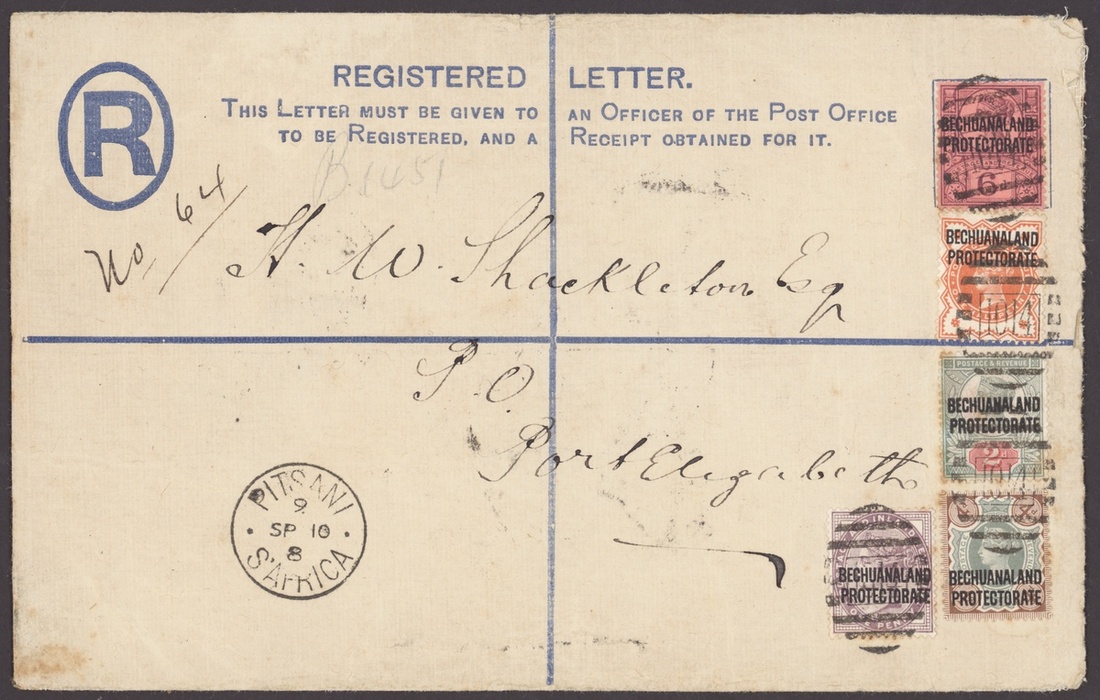 REGISTERED LETTER.
THIS LETTER MUST BE GIVEN TO AN OFFICER OF THE POST OFFICE
TO BE REGISTERED, AND A RECEIPT OBTAINED FOR IT.
R
B1451
No. 64
H. W. Shackleton Esq
P.O.
Port Elizabeth
PITSANI
9
SP 10
8
S. AFRICA
BECHUANALAND
PROTECTORATE
6d
BECHUANALAND
PROTECTORATE
POSTAGE & REVENUE
BECHUANALAND
PROTECTORATE
2d
BECHUANALAND
PROTECTORATE
BECHUANALAND
PROTECTORATE